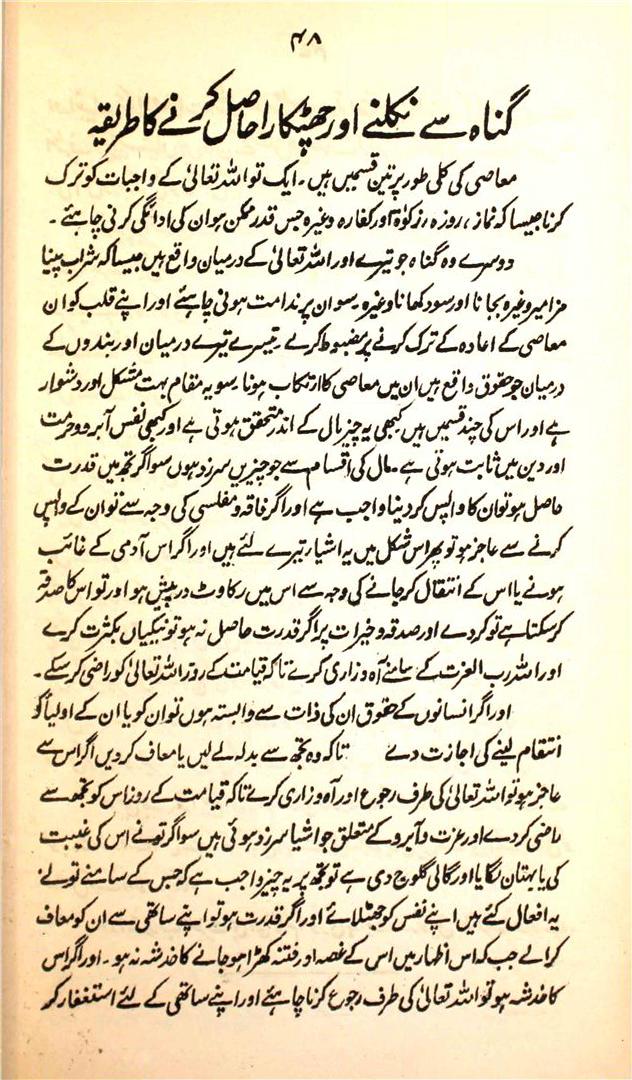 ۴۸
گناہ سے نکلنے اور چھٹکارا حاصل کرنے کا طریقہ
معاصی کی کلی طور پر تین قسمیں ہیں۔ ایک تو اللہ تعالیٰ کے واجبات کو ترک
کرنا جیسا کہ نماز، روزہ، زکوٰۃ اور کفارہ وغیرہ جس قدر ممکن ہو ان کی ادائگی کرنی چاہئے۔
دوسرے وہ گناہ جو تیرے اور اللہ تعالیٰ کے درمیان واقع ہیں جیسا کہ شراب پینا
مزامیر وغیرہ بجانا اور سود کھانا وغیرہ سو ان پر ندامت ہونی چاہئے اور اپنے قلب کو ان
معاصی کے اعادہ کے ترک کرنے پر مضبوط کرلے۔ تیسرے تیرے درمیان اور بندوں کے
درمیان جو حقوق واقع ہیں ان میں معاصی کا ارتکاب ہونا سو یہ مقام بہت مشکل اور دشوار
ہے اور اس کی چند قسمیں ہیں کبھی یہ چیز مال کے اندر متحقق ہوتی ہے اور کبھی نفس آبرو و حرمت
اور دین میں ثابت ہوتی ہے۔ مال کی اقسام سے جو چیزیں سرزد ہوں سو اگر تجھ میں قدرت
حاصل ہو تو ان کا واپس کر دینا واجب ہے اور اگر فاقہ و مفلسی کی وجہ سے تو ان کے واپس
کرنے سے عاجز ہو تو پھر اس شکل میں یہ اشیار تیرے لئے ہیں اور اگر اس آدمی کے غائب
ہونے یا اس کے انتقال کر جانے کی وجہ سے اس میں رکاوٹ درپیش ہو اور تو اس کا صدقہ
کر سکتا ہے تو کر دے اور صدقہ و خیرات پر اگر قدرت حاصل نہ ہو تو نیکیاں بکثرت کرے
اور اللہ رب العزت کے سامنے آہ وزاری کرے تاکہ قیامت کے روز اللہ تعالیٰ کو راضی کر سکے۔
اور اگر انسانوں کے حقوق ان کی ذات سے وابستہ ہوں تو ان کو یا ان کے اولیاً کو
انتقام لینے کی اجازت دے تاکہ وہ تجھ سے بدلہ لے لیں یا معاف کر دیں اگر اس سے
عاجز ہو تو اللہ تعالیٰ کی طرف رجوع اور آہ وزاری کرے تاکہ قیامت کے روز اس کو تجھ سے
راضی کر دے اور عزت و آبرو کے متعلق جو اشیا سرزد ہوئی ہیں سو اگر تو نے اس کی غیبت
کی یا بہتان لگایا اور گالی گلوج دی ہے تو تجھ پر یہ چیز واجب ہے کہ جس کے سامنے تو نے
یہ افعال کئے ہیں اپنے نفس کو جھٹلائے اور اگر قدرت ہو تو اپنے ساتھی سے ان کو معاف
کرالے جب کہ اس اظہار میں اس کے غصہ اور فتنہ کھڑا ہو جانے کا خدشہ نہ ہو۔ اور اگر اس
کا خدشہ ہو تو اللہ تعالیٰ کی طرف رجوع کرنا چاہئے اور اپنے ساتھی کے لئے استغفار کر